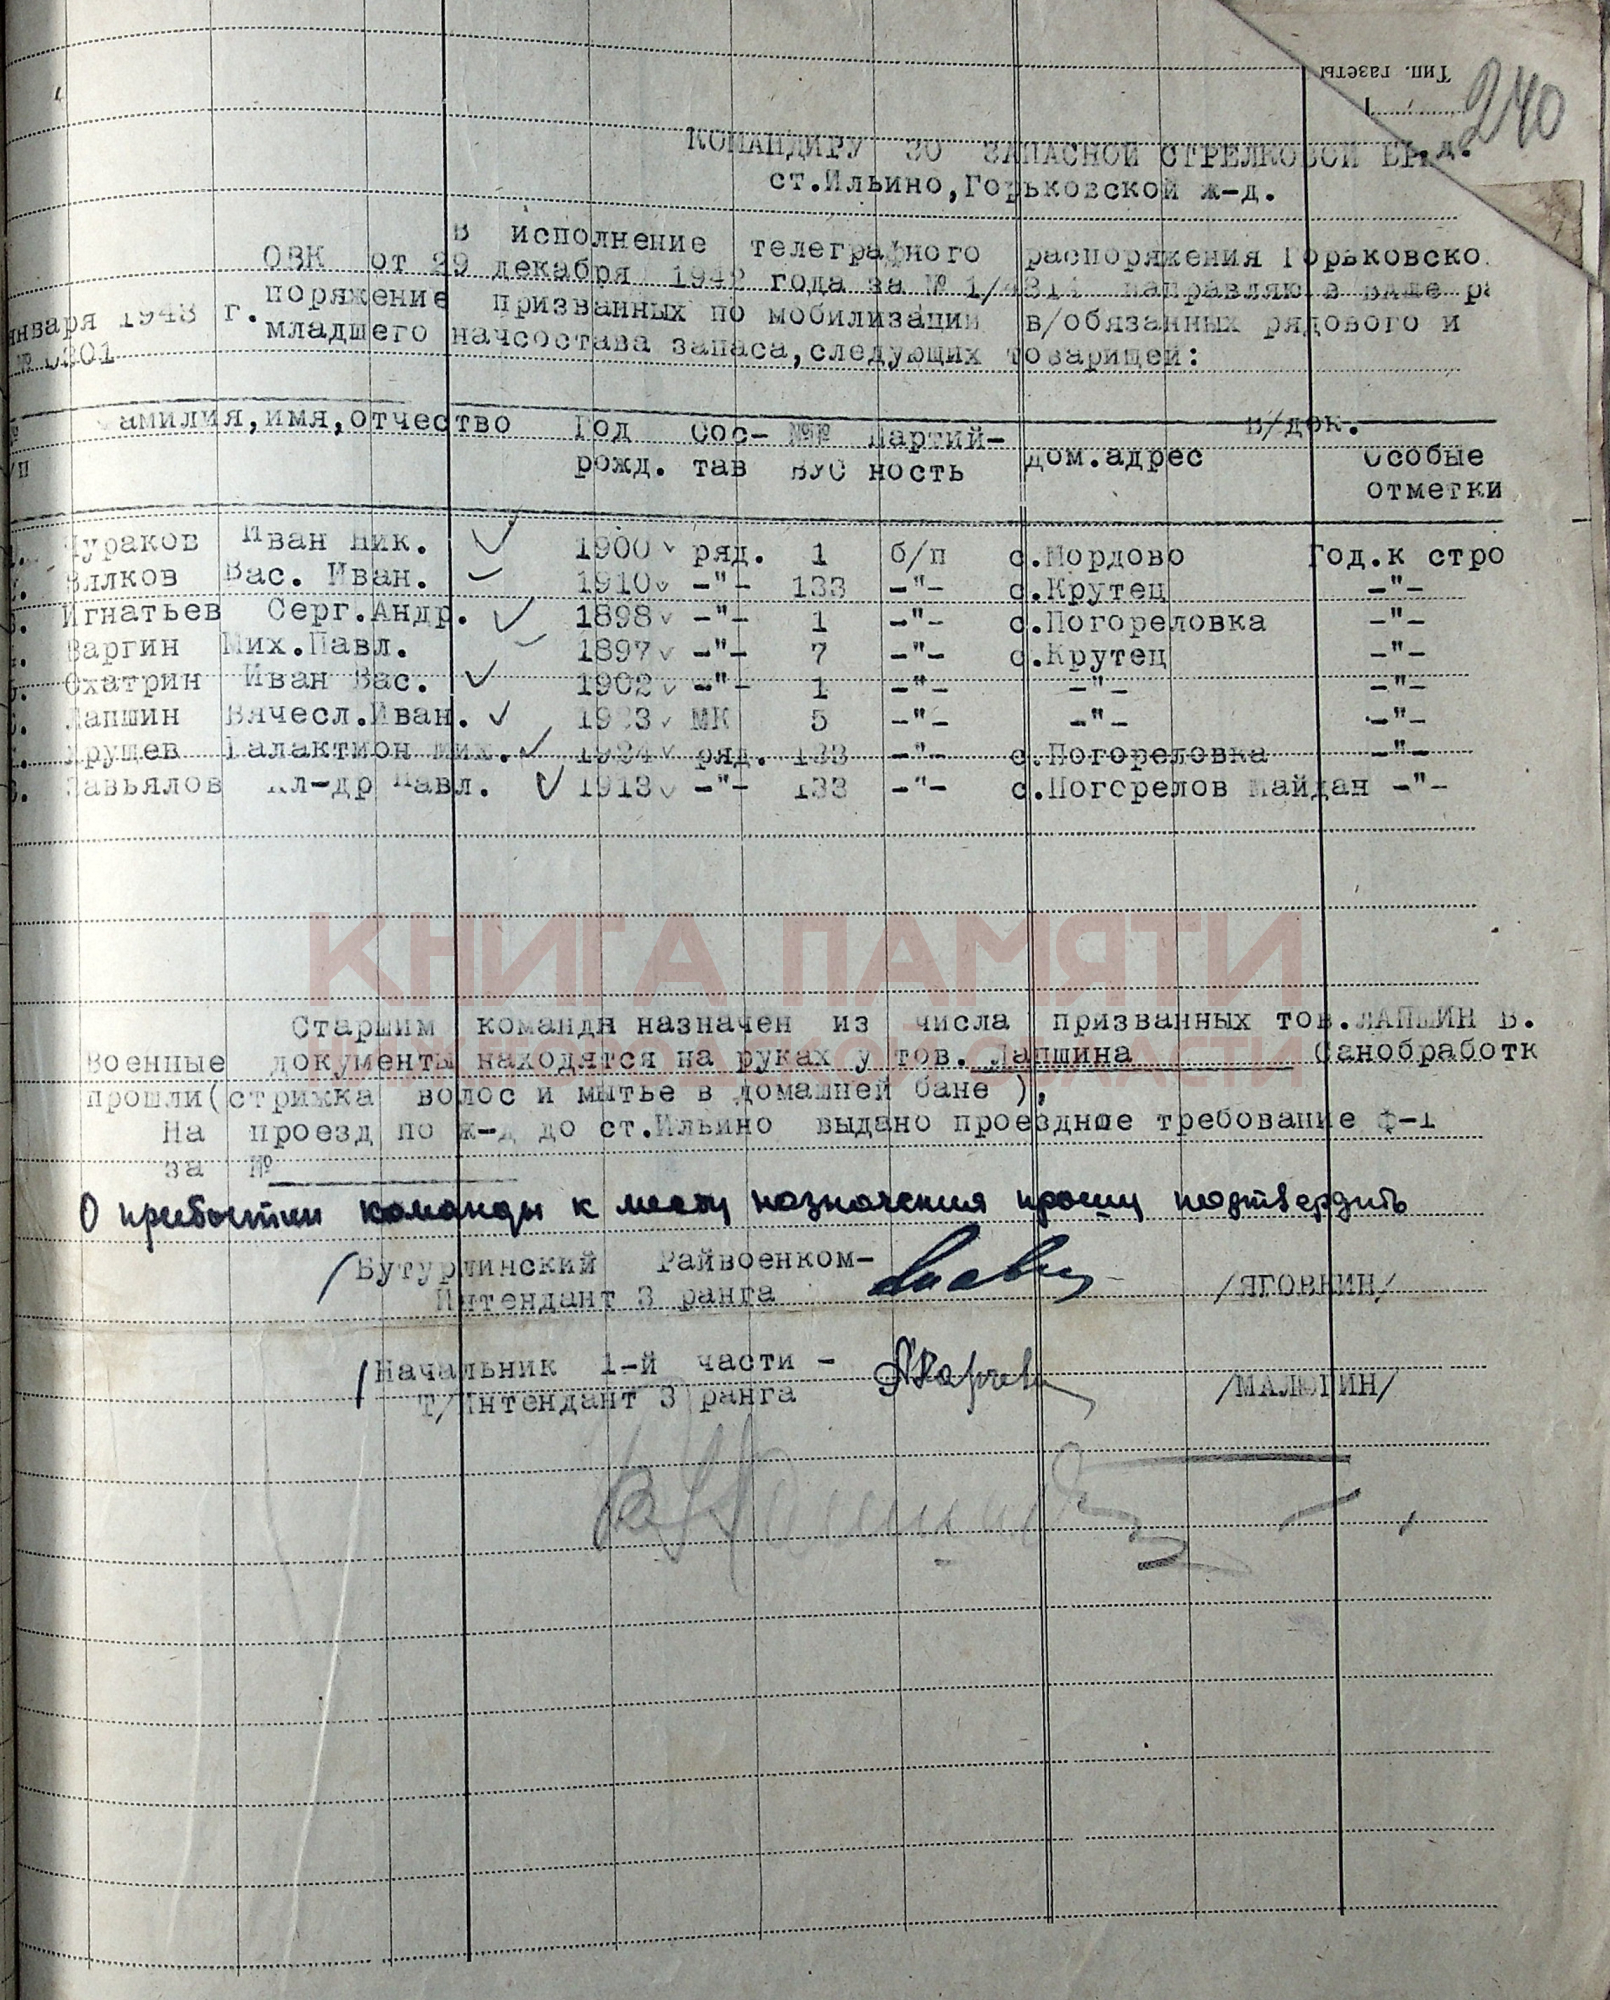 Тип. газеты
240
КОМАНДИРУ 30 ЗАПАСНОЙ СТРЕЛКОВОЙ БР.д.
ст.Ильино,Горьковской ж-д.
В исполнение телеграфного распоряжения Горьковско
ОВК от 29 декабря 1942 года за № направляю в ваше ра
января 1943 г. поряжение призванных по мобилизации в/обязанных рядового и
младшего начсостава запаса,следующих товарищей:
амилия,имя,отчество Год рожд. Сос-тав №№ ВУС Партий-ность дом.адрес в/док. Особые отметки
Чураков Иван Ник. 1900 ряд. 1 б/п с.Мордово Год.к стро
Вялков Вас. Иван. 1910 -"- 133 -"- с.Крутец -"-
Игнатьев Серг.Андр. 1898 -"- 1 -"- с.Погореловка -"-
Варгин Мих.Павл. 1897 -"- 7 -"- с.Крутец -"-
Охатрин Иван Вас. 1902 -"- 1 -"- -"- -"-
Лапшин Вячесл.Иван. МК 5 -"- -"- -"-
Хрущев Галактион Мих. ряд. 133 -"- с.Погореловка -"-
Завьялов Ал-др Павл. 1913 -"- 133 -"- с.Погорелов Майдан -"-
КНИГА ПАМЯТИ
НИЖЕГОРОДСКОЙ ОБЛАСТИ
Старшим команды назначен из числа призванных тов.ЛАПШИН В.
Военные документы находятся на руках у тов. Лапшина Санобработк
прошли(стрижка волос и мытье в домашней бане ),
На проезд по ж-д до ст.Ильино выдано проездное требование ф-1
за №
О прибытии команды к месту назначения прошу подтвердить
/Бутурлинский Райвоенком-
Интендант 3 ранга /ЯГОВКИН/
/Начальник 1-й части -
Т/Интендант 3 ранга /МАЛЮГИН/